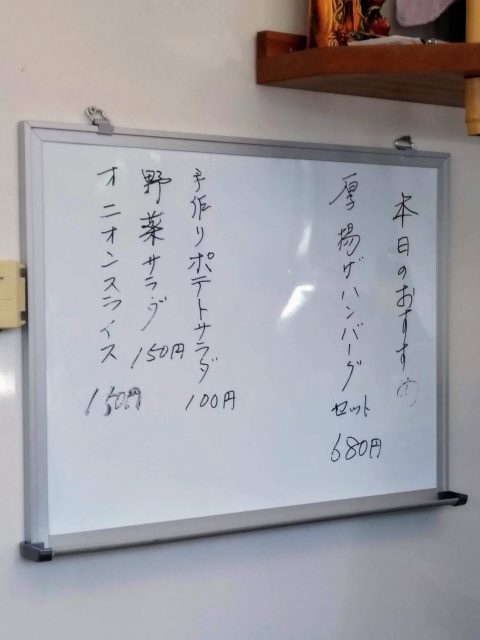 本日のおすすめ
厚揚げハンバーグ セット
680円
手作りポテトサラダ
100円
野菜サラダ 150円
オニオンスライス
150円